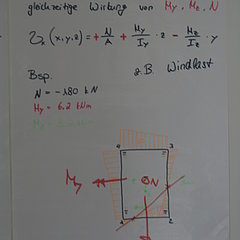 gleichzeitige Wirkung von My, Mz, N
σx (x,y,z) = + N/A + My/Iy · z - Mz/Iz · y
Bsp. z.B. Windlast
N = -180 kN
My = 6.2 kNm
4 3
My N
1 2